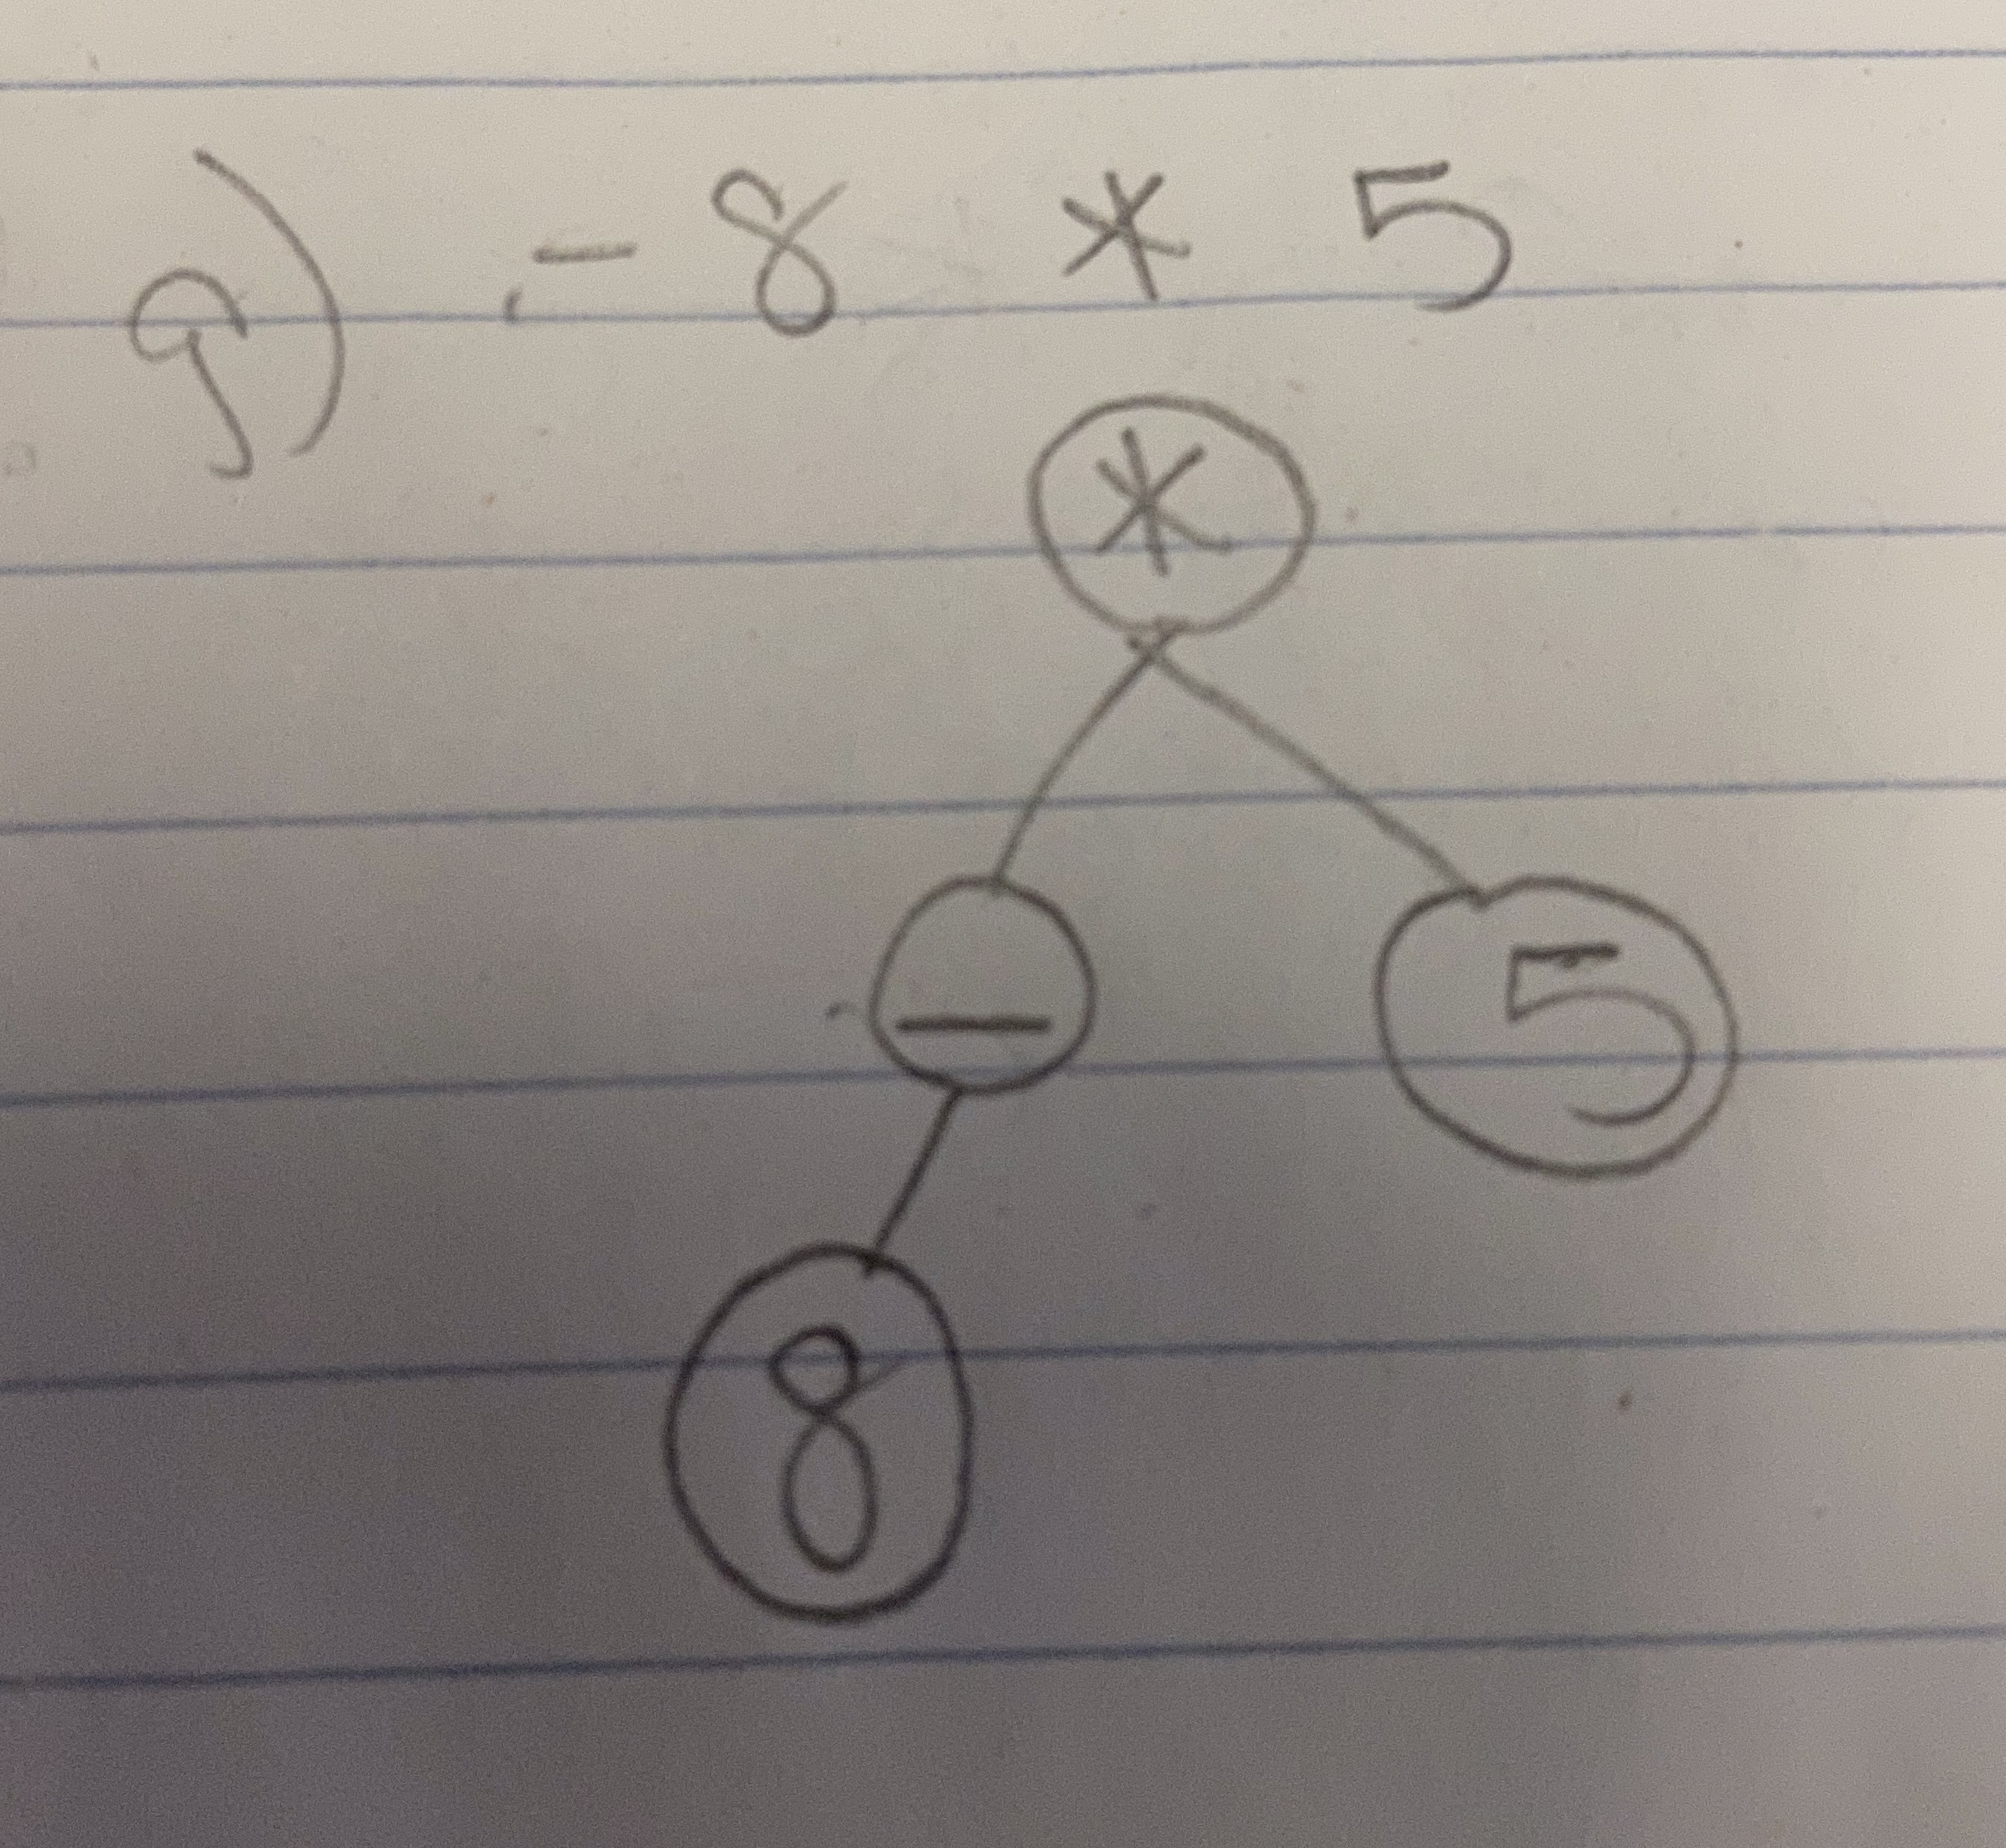 g) -8 * 5
*
- 5
8